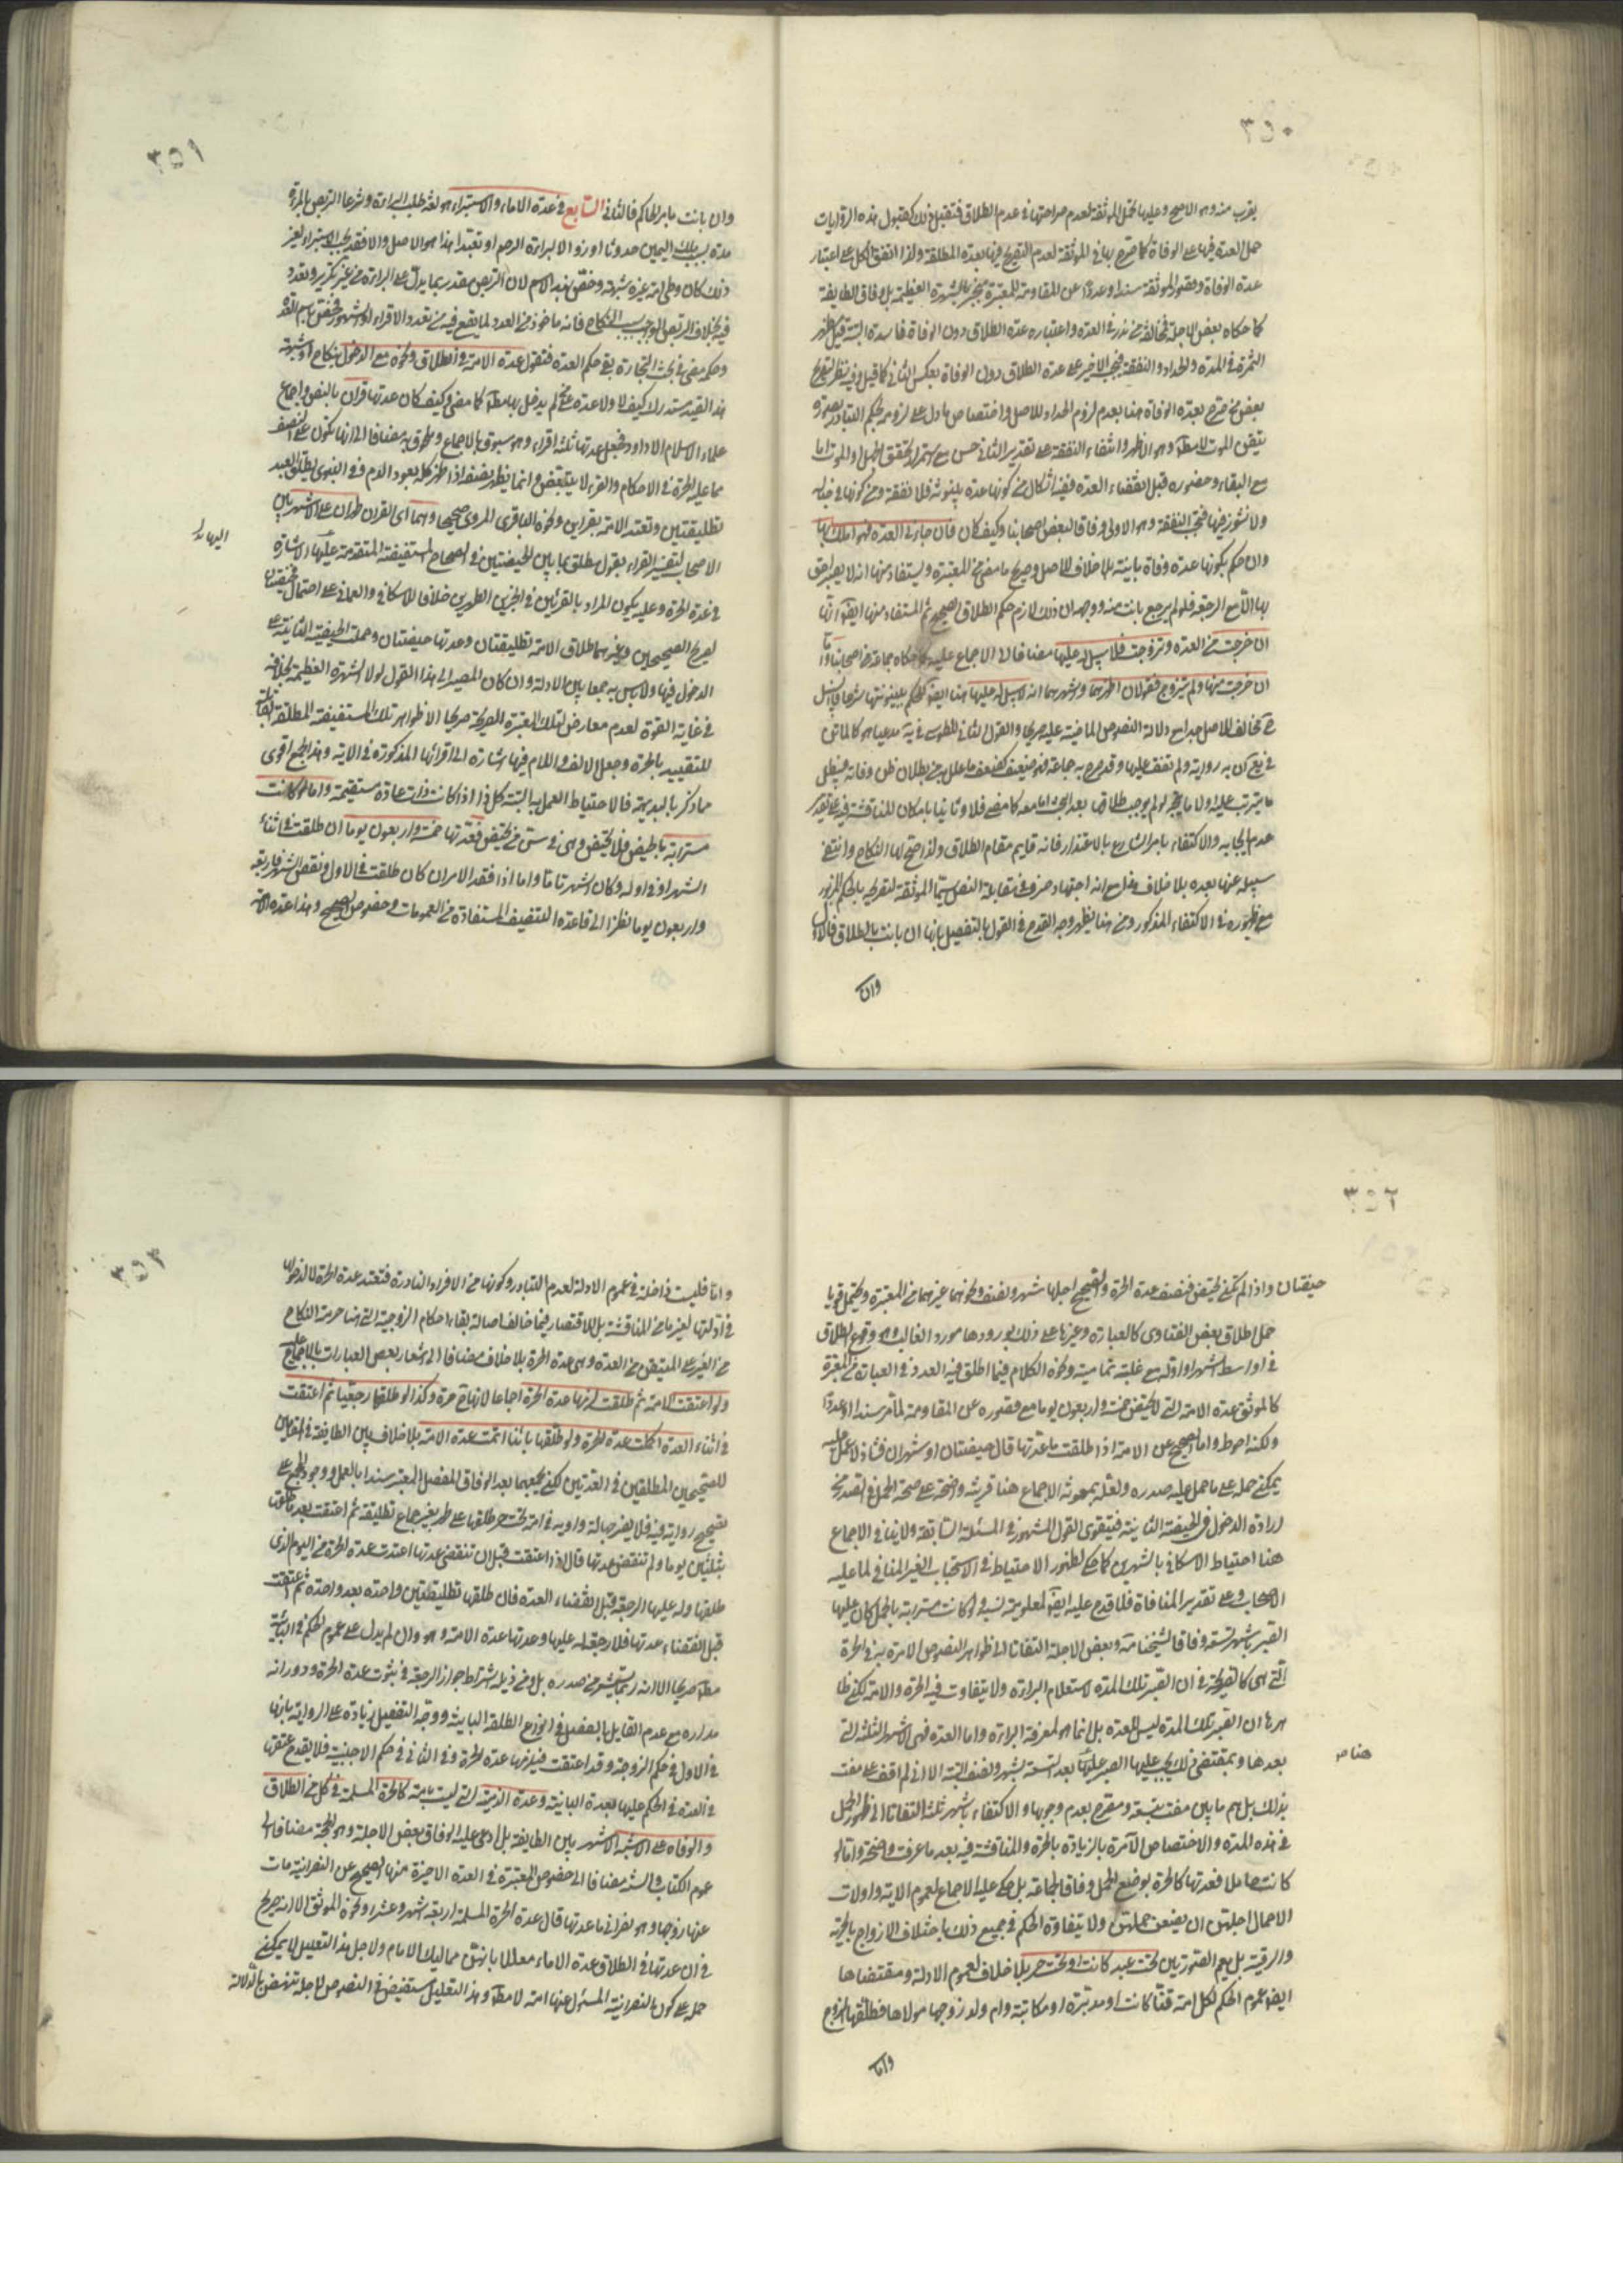 ٣٥٠
يقرب منه وهو الاصح وعليها يحمل الموثقة لعدم صراحتها في عدم الطلاق فتقبل ذلك كقبول هذه الروايات
حمل العدة فيها على الوفاة كما صرح بها في الموثقة لعدم التصريح فيها بعدة المطلقة ولذا اتفق الكل على اعتبار
عدة الوفاة وقصور الموثقة سندا وعددا عن المقاومة للمعتبرة منجبر بالشهرة العظيمة بل وفاق الطايفة
كما حكاه بعض الاجلة فمخالفة من ندر في العدة واعتباره عدة الطلاق دون الوفاة فاسدة البتة قيل وتظهر
الثمرة في المدة والحداد والنفقة فيجب الاخير على عدة الطلاق دون الوفاة بعكس الثاني كما قيل وفيه نظر لتصريح
بعض من صرح بعدة الوفاة هنا بعدم لزوم الحداد للاصل واختصاص ما دل على لزومه بحكم التبادر بصورة
تيقن الموت لا مطلقا وهو الاظهر وانتفاء النفقة على تقدير الثاني حسن مع استمرار تحقق الجهل او الموت اما
مع البقاء وحضوره قبل انقضاء العدة ففيه اشكال من كونها عدة بينونة فلا نفقة ومن كونها في حباله
ولا نشوز فيها فتجب النفقة وهو الاولى وفاقا لبعض اصحابنا وكيف كان فان جاء في العدة فهو املك بها
وان حكم بكونها عدة وفاة باينة بلا خلاف للاصل وصريح ما مضى من المعتبرة ويستفاد منها انه لا يصير احق
بها الا مع الرجعة فلو لم يرجع بانت منه ووجهه ان ذلك لازم حكم الطلاق الصحيح ثم المستفاد منها ايضا انها
ان خرجت من العدة وتزوجت فلا سبيل له عليها مضافا الى الاجماع عليه كما حكاه جماعة من اصحابنا واما
ان خرجت منها ولم تتزوج فقولان اظهرهما واشهرهما انه لا سبيل له عليها هنا ايضا للحكم ببينونتها شرعا
مخالف للاصل جدا مع دلالة النصوص الماضية عليه صريحا والقول الثاني للطوسي في يه مدعيا هو كالماتن
في يع كن به رواية ولم نقف عليها وقد صرح به جماعة فهو ضعيف كضعف ما علل به من بطلان ظن وفاته فيبطل
ما يترتب عليه اولا ما يتجه لو لم يوجب طلاقها بعد البحث اما معه كما مضى فلا وثانيا بامكان المناقشة فيه على تقدير
عدم ايجابه والاكتفاء بامر الشارع بالاعتداد فانه قايم مقام الطلاق ولذا صح لها النكاح وانتفى
سبيله عنها بعده بلا خلاف فلعله اجتهاد صرف في مقابلة النص سيما الموثقة لتصريحه بالحكم المزبور
مع ظهوره في الاكتفاء المذكور ومن هنا يظهر وجه القدح في القول بالتفصيل بانها ان بانت بالطلاق فالاول
وان
٣٥١
وان بانت بامر الحاكم فالثاني السابع في عدة الاماء والاستبراء هو لغة طلب البراءة وشرعا التربص بالمرأة
مدة بسبب ملك اليمين حدوثا او زوالا لبراءة الرحم او تعبدا هذا هو الاصل والا فقد يجب الاستبراء لغير
ذلك كان وطئ امة غيره شبهة وخص بهذا الاسم لان التربص مقدر بما يدل على البراءة من غير تكرير وتعدد
فيه بخلاف التربص الواجب بسبب النكاح فانه ماخوذ من العدد لما يقع فيه من تعدد الاقراء او الشهور فخص باسم العدة
وحكمه مضى في بحث التجارة بقي حكم العدة فنقول عدة الامة في الطلاق ونحوه مع الدخول بنكاح او شبهة
هذا القيد مستدرك كيف لا ولا عدة على من لم يدخل بها مطلقا كما مضى وكيف كان عدتها قرآن بالنص واجماع
علماء الاسلام الا داود فجعل عدتها ثلثة اقراء وهو مسبوق بالاجماع وملحوق به مضافا الى انها تكون على النصف
مما عليه الحرة في الاحكام والقرء لا يتبعض وانما يظهر نصفه اذا ظهر كله بعود الدم وفي النبوي يطلق العبد
تطليقتين وتعتد الامة بقراين ونحوه الباقري المروي صحيحا وهما اي القرآن طهران على الاشهر بين
الاصحاب لتفسير القراء بقول مطلق بما بين الحيضتين في الصحاح المستفيضة المتقدمة عليها الاشارة
اليها
في عدة الحرة وعليه يكون المراد بالقرئين في الخبرين الطهرين خلافا للاسكافي والعماني على احتمال فحيضتان
لصريح الصحيحين وغيرهما طلاق الامة تطليقتان وعدتها حيضتان وحملت الحيضية الثانية على
الدخول فيها ولا باس به جمعا بين الادلة وان كان المصير الى هذا القول لولا الشهرة العظيمة بخلافه
في غاية القوة لعدم معارض لتلك المعتبرة الصريحة صريحا الا ظواهر تلك المستفيضة المطلقة القابلة
للتقييد بالحرة وجعل الالف واللام فيها اشارة الى اقرائها المذكورة في الاية وهذا الجمع اقوى
مما ذكر بالبديهة فالاحتياط العمل به البتة كل ذا اذا كانت ذات عادة مستقيمة واما لو كانت
مسترابة بالحيض فلا تحيض وهي في سن من تحيض فعدتها خمسة واربعون يوما ان طلقت في اثناء
الشهر او في اوله وكان الشهر تاما واما اذا فقد الامران كان طلقت في الاول ونقص الشهر فاربعة
واربعون يوما نظرا الى قاعدة التنصيف المستفادة من العمومات وخصوص الصحيح وهذا عدة الامة
٣٥٢
حيضتان واذا لم تكن تحيض فنصف عدة الحرة والصحيح اجلها شهر ونصف ونحوهما غيرهما من المعتبرة ويحتمل قويا
حمل اطلاق بعض الفتاوى كالعبارة وغيرها على ذلك بورودها مورد الغالب وهو وقوع الطلاق
في اواسط الشهر او اوله مع غلبة تماميته ونحوه الكلام فيما اطلق فيه العدد في العبارة من المعتبرة
كالموثق عدة الامة التي لا تحيض خمسة واربعون يوما مع قصوره عن المقاومة لما مر سندا او عددا
ولكنه احوط واما الصحيح عن الامة اذا طلقت ما عدتها قال حيضتان او شهران فشاذ لا عمل عليه
يمكن حمله على ما حمل عليه صدره ولعله بمعونة الاجماع هنا قرينة واضحة على صحة الحمل في الصدر من
ارادة الدخول في الحيضة الثانية فيتقوى القول المشهور في المسئلة السابقة ولا ينافي الاجماع
هنا احتياط الاسكافي بالشهرين كما حكي لظهور الاحتياط في الاستحباب الغير المنافي لما عليه
الاصحاب وعلى تقدير المنافاة فلا قدح عليه ايضا لمعلومية نسبه ولو كانت مسترابة بالحمل كان عليها
الصبر باشهر تسعة وفاقا لشيخنا مه وبعض الاجلة التفاتا الى ظواهر النصوص الامرة به في الحرة
التي هي كالصريحة في ان الصبر تلك المدة لاستعلام البراءة ولا يتفاوت فيه الحرة والامة لكن ظا
هرها ان الصبر تلك المدة ليس للعدة بل انما هو لمعرفة البراءة واما العدة فهي الاشهر الثلثة التي
بعدها وبمقتضى ذلك يجب عليها الصبر هنا بعد التسعة بشهر ونصف البتة الا اني لم اقف على مفت
هنا ص
بذلك بل هم ما بين مفت بتسعة ومصرح بعدم وجوبها والاكتفاء باشهر ثلثة التفاتا الى ظهور الحمل
في هذه المدة والاختصاص الآمرة بالزيادة بالحرة والمناقشة فيه بعد ما عرفت واضحة واما لو
كانت حاملا فعدتها كالحرة بوضع الحمل وفاقا لجماعة بل حكي عليه الاجماع لعموم الاية واولات
الاحمال اجلهن ان يضعن حملهن ولا يتفاوت الحكم في جميع ذلك باختلاف الازواج بالحرية
والرقية بل يعم الصورتين تحت عبد كانت او تحت حر بلا خلاف لعموم الادلة ومقتضاها
ايضا عموم الحكم لكل امة قنا كانت او مدبرة او مكاتبة وام ولد زوجها مولاها فطلقها الزوج
واما
٣٥٣
واما فليست داخلة في عموم الادلة لعدم التبادر وكونها من الافراد النادرة فتعتد عدة الحرة لا لدخولها
في ادلتها لغير ما من المناقشة بل للاقتصار فيما خالف اصالة بقاء احكام الزوجية التي منها حرمة النكاح
من الغير على المتيقن من العدة وهي عدة الحرة بلا خلاف مضافا الى اشعار بعض العبارات بالاجماع عليه
ولو اعتقت الامة ثم طلقت لزمها عدة الحرة اجماعا لانها ح حرة وكذا لو طلقها رجعيا ثم اعتقت
في اثناء العدة اكملت عدة الحرة ولو طلقها باينا اتمت عدة الامة بلا خلاف بين الطايفة في المقامين
للصحيحين المطلقين في العدتين لكن يجمعهما بعد الوفاق المفصل المعتبر سندا بالعمل ووجود المجمع على
تصحيح رواياته فيه فلا يضر جهالة راويه في امة تحت حر طلقها على طهر بغير جماع تطليقة ثم اعتقت بعد ما طلقها
بثلثين يوما ولم تنقض عدتها قال اذا اعتقت قبل ان تنقضي عدتها اعتدت عدة الحرة من اليوم الذي
طلقها وله عليها الرجعة قبل انقضاء العدة فان طلقها تطليقتين واحدة بعد واحدة ثم اعتقت
قبل انقضاء عدتها فلا رجعة له عليها وعدتها عدة الامة وهو وان لم يدل على عموم الحكم في الباينة
مطلقا صريحا الا انه ربما يستشم من صدره بل ومن ذيله اشتراط جواز الرجعة في ثبوت عدة الحرة ودورانه
مداره مع عدم القايل بالفصل في انواع الطلقة الباينة ووجه التفصيل زيادة على الرواية بانها
في الاول في حكم الزوجة وقد اعتقت فيلزمها عدة الحرة وفي الثاني في حكم الاجنبية فلا يقدح عتقها
في العدة في الحكم عليها بعدة الباينة وعدة الذمية التي ليست بامة كالحرة المسلمة في كل من الطلاق
والوفاة على الاشبه الاشهر بين الطايفة بل ادعى عليه الوفاق بعض الاجلة وهو الحجة مضافا الى
عموم الكتاب والسنة مضافا الى خصوص المعتبرة في العدة الاخيرة منها الصحيح عن النصرانية مات
عنها زوجها وهو نصراني ما عدتها قال عدة الحرة المسلمة اربعة اشهر وعشرا ونحوه الموثق الا انه صريح
في ان عدتها في الطلاق عدة الاماء معللا بانهن مماليك الامام ولاجل هذا التعليل لا يمكن
حمله على كون النصرانية المسئول عنها امة لا مطلقا وهذا التعليل مستفيض في النصوص لاجله تنهض بالدلالة